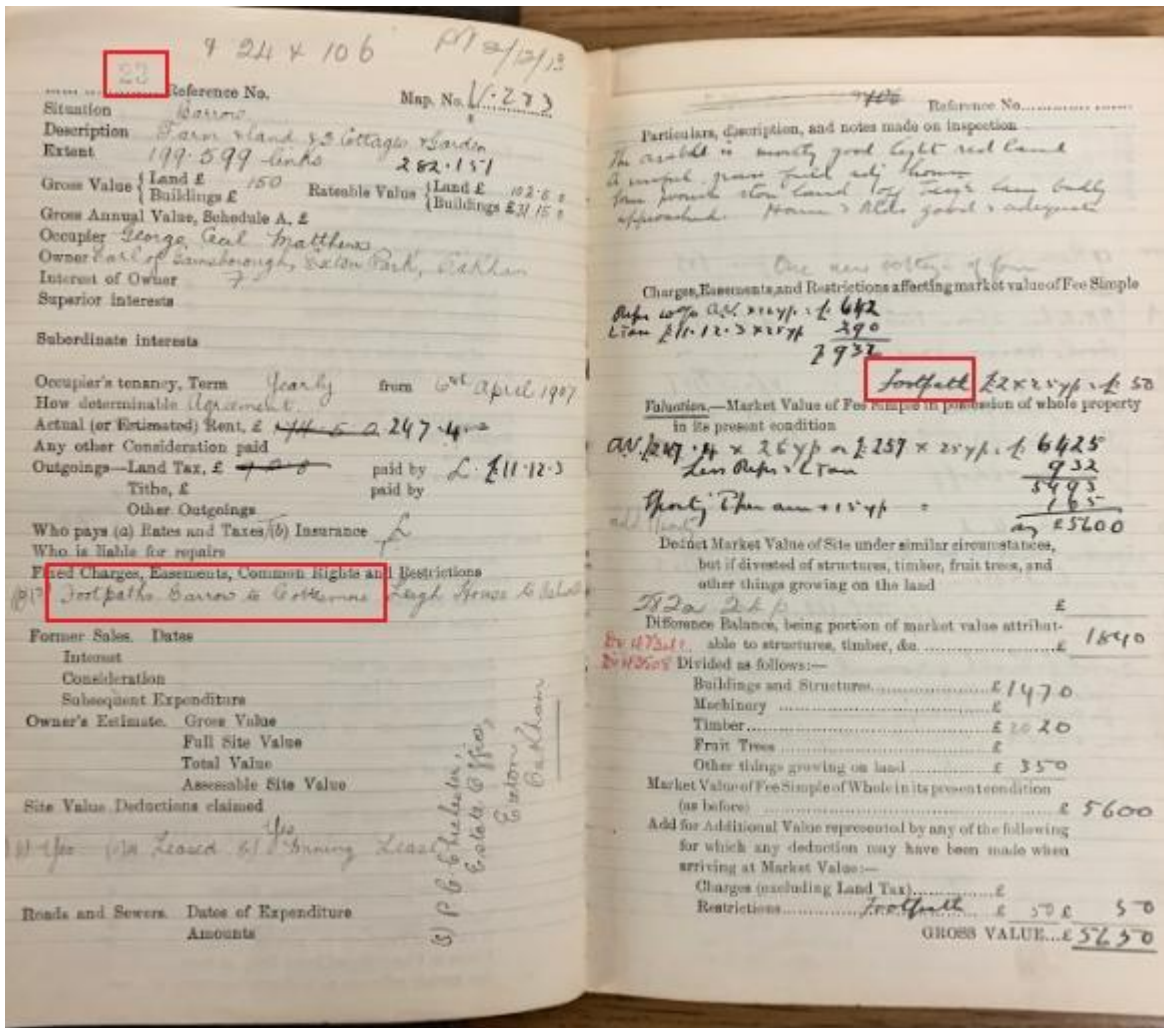 & 24 & 106
23
Reference No.
Map. No. V.283
Situation Barrow
Description Farm & land & 3 Cottages & Garden
Extent 199.599 links
282.151
Gross Value { Land £ 150 Rateable Value { Land £
Buildings £ Buildings £ 31.15.0
Gross Annual Value, Schedule A, £
Occupier George Cecil Matthews
Owner Earl of Gainsborough, Exton Park, Oakham
Interest of Owner F
Superior interests
Subordinate interests
Occupier's tenancy, Term Yearly from 6th April 1907
How determinable Agreement
Actual (or Estimated) Rent, £ 247.4
Any other Consideration paid
Outgoings—Land Tax, £ paid by L. £11.12.3
Tithe, £ paid by
Other Outgoings
Who pays (a) Rates and Taxes (b) Insurance L
Who is liable for repairs
Fixed Charges, Easements, Common Rights and Restrictions
Footpaths Barrow to Cottesmore Leigh House to
Former Sales. Dates
Interest
Consideration
Subsequent Expenditure
Owner's Estimate. Gross Value
Full Site Value
Total Value
Assessable Site Value
Site Value Deductions claimed
Yes
Yes Leased Mining Lease
Roads and Sewers. Dates of Expenditure
Amounts
Chichester,
Estate Office,
Exton,
Oakham
Reference No.
Particulars, description, and notes made on inspection
The arable is mostly good light red land
A useful grass field adj house
approached. House & Blds good & adequate
One new cottage
Charges, Easements, and Restrictions affecting market value of Fee Simple
Reps 10% A.V. × 25 yp. £ 642
LTax £11.12.3 × 25 yp 290
932
Footpath £2 × 25 yp = £ 50
Valuation.—Market Value of Fee Simple in possession of whole property
in its present condition
A.V. £247.4 × 26 yp or £257 × 25 yp. £ 6425
Less Reps & LTax 932
5493
165
£5600
Deduct Market Value of Site under similar circumstances,
but if divested of structures, timber, fruit trees, and
other things growing on the land
£
Difference Balance, being portion of market value attribut-
able to structures, timber, &c. £ 1840
Divided as follows:—
Buildings and Structures £ 1470
Machinery £
Timber £ 20
Fruit Trees £
Other things growing on land £ 350
Market Value of Fee Simple of Whole in its present condition
(as before) £ 5600
Add for Additional Value represented by any of the following
for which any deduction may have been made when
arriving at Market Value:—
Charges (excluding Land Tax) £
Restrictions Footpath £ 50 £ 50
GROSS VALUE...£ 5650